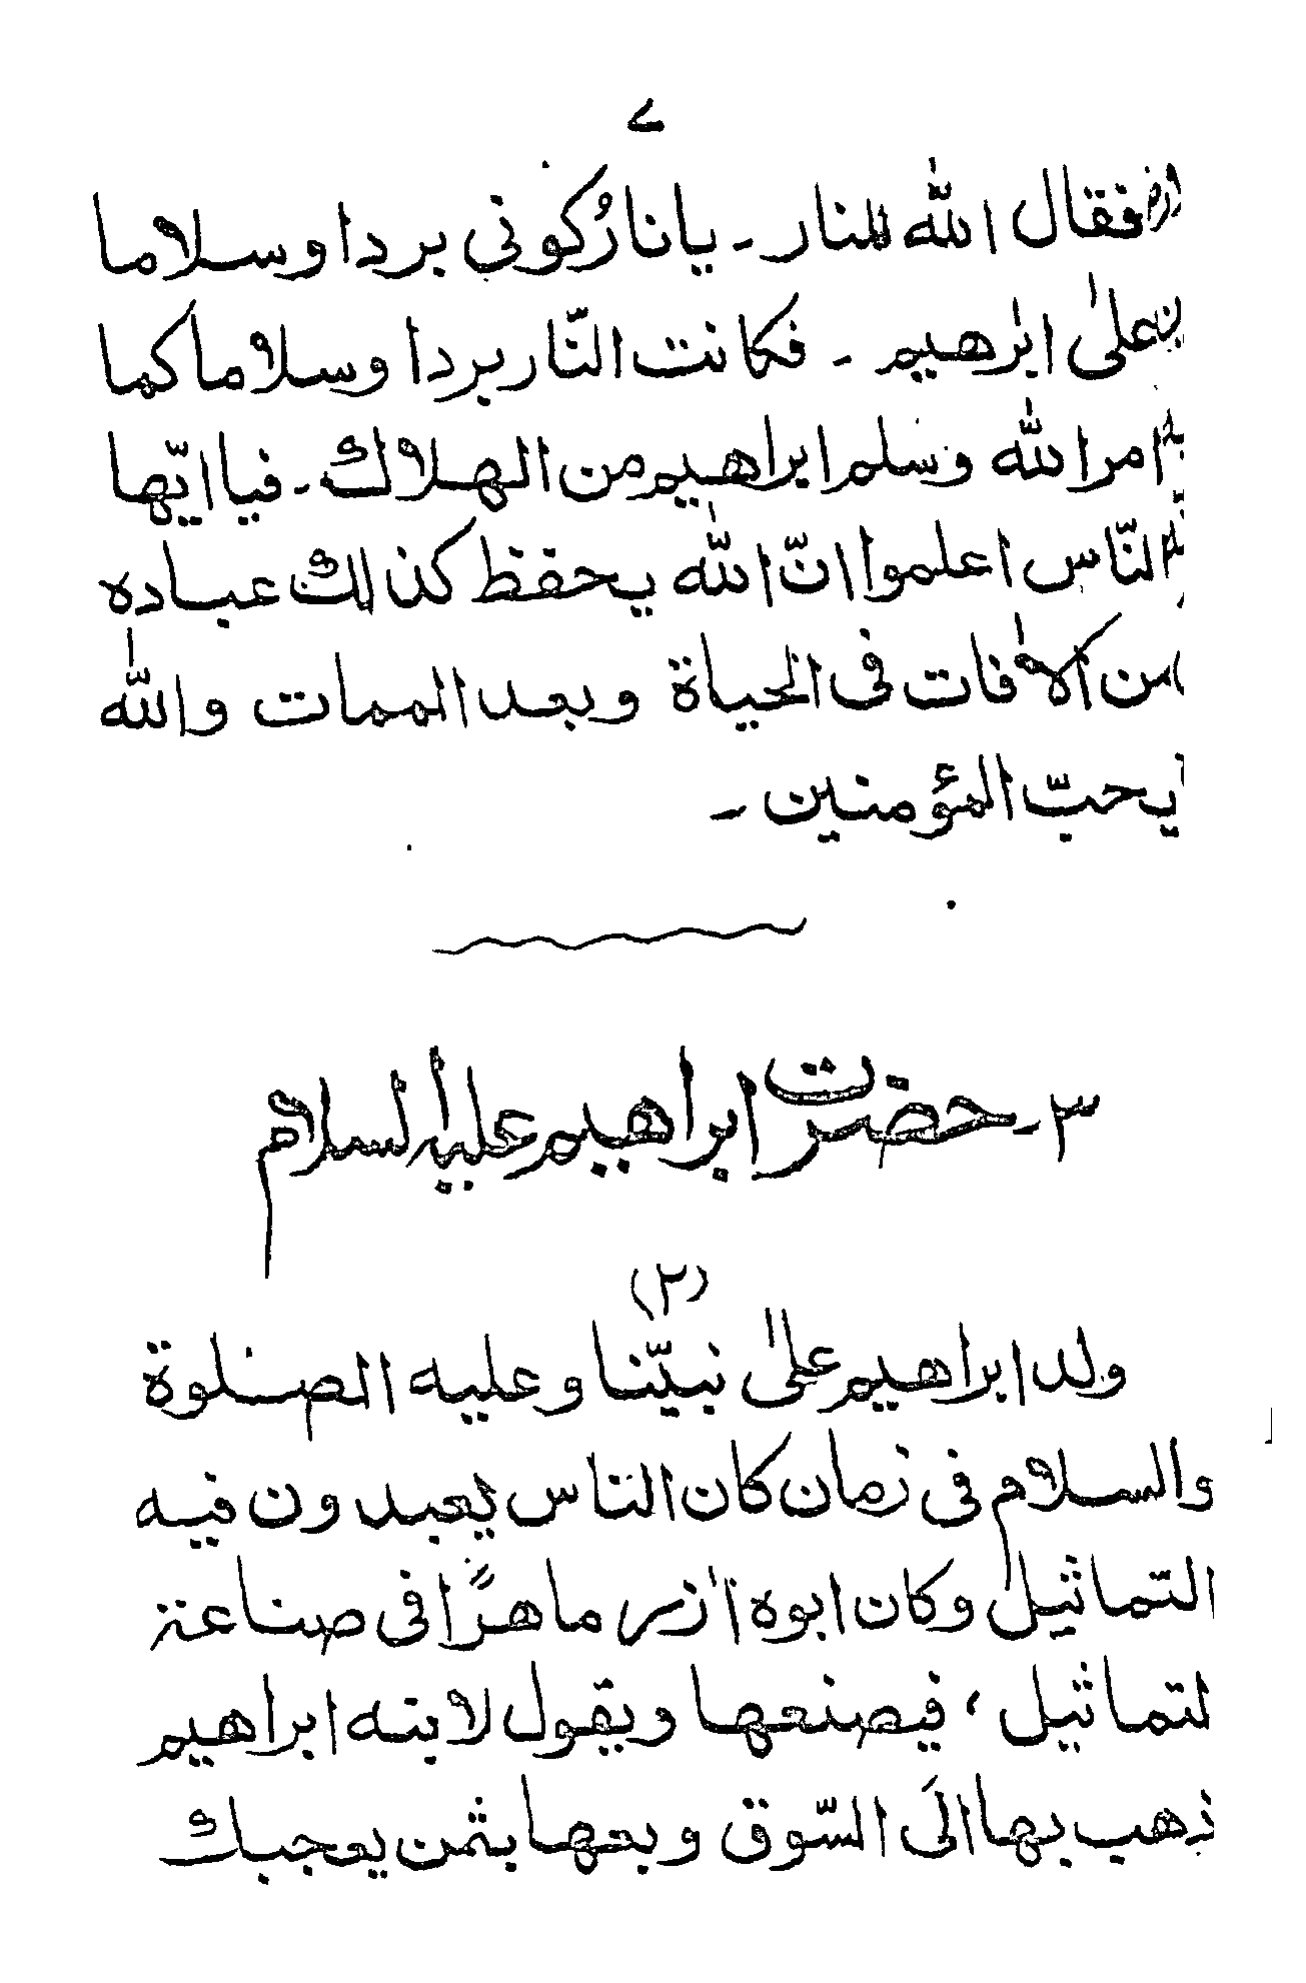 ۷
فقال الله للنار ۔ يا نارُ كوني بردا وسلاما
على ابرهيم ۔ فكانت النّار بردا وسلاما كما
امر الله وسلم ابراهيم من الهلاك ۔ فيا ايّها
النّاس اعلموا انّ الله يحفظ كذلك عباده
من الآفات فى الحياة وبعد الممات والله
يحبّ المؤمنين ۔
۳ ۔ حضرت ابراهيم عليه السلام
(۲)
ولد ابراهيم على نبيّنا وعليه الصلوة
والسلام فى زمان كان الناس يعبدون فيه
التماثيل وكان ابوه آزر ماهرًا فى صناعة
لتماثيل ، فيصنعها ويقول لابنه ابراهيم
ذهب بها الَى السّوق وبعها بثمن يعجبك